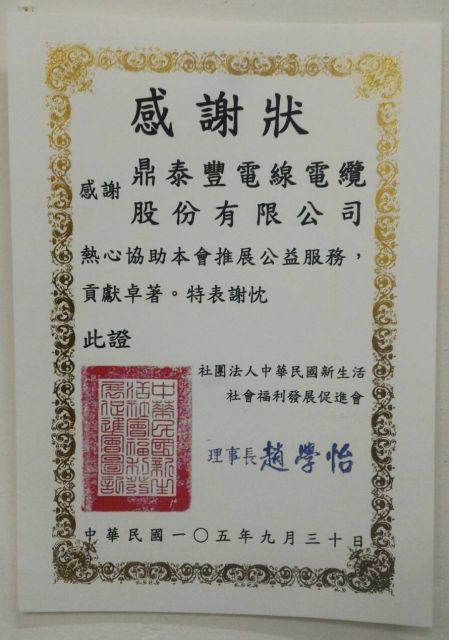 感謝狀
感謝 鼎泰豐電線電纜
股份有限公司
熱心協助本會推展公益服務，
貢獻卓著。特表謝忱
此證
社團法人中華民國新生活
社會福利發展促進會
理事長 趙學怡
中華民國新生
活社會福利發
展促進會圖記
中華民國一〇五年九月三十日